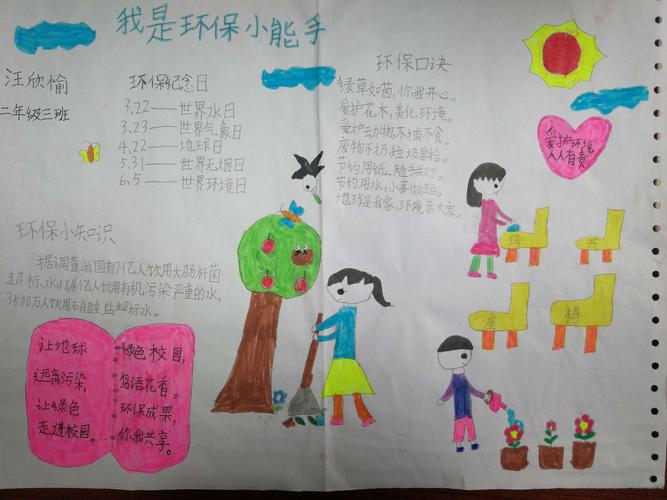 我是环保小能手
汪欣愉
二年级三班
环保纪念日
3,22——世界水日
3.23——世界气象日
4,22——地球日
5.31——世界无烟日
6、5——世界环境日
环保口诀
绿草如茵,你我开心。
爱护花木,美化环境。
爱护动物不捕不食。
废物不扔,垃圾要捡。
节约用纸,随手关灯。
节约用水,小事做起。
地球是我家,环境靠大家。
爱护环境
人人有责
公 共
座 椅
环保小知识
据调查我国有7亿人饮用大肠杆菌
超标水,1.64亿人饮用有机污染严重的水,
3500万人饮用硝酸盐超标水。
让地球
远离污染,
让绿色
走进校园。
绿色校园,
鸟语花香。
环保成果,
你我共享。